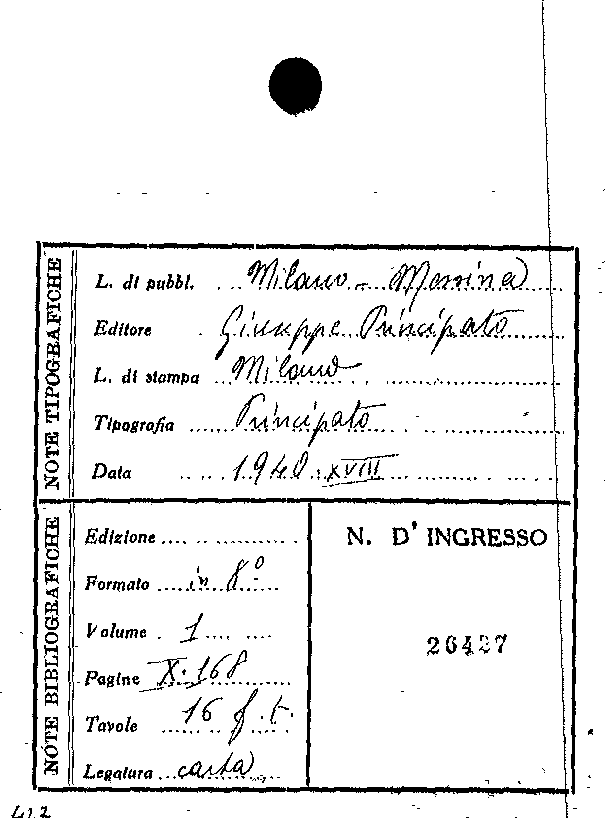 NOTE TIPOGRAFICHE
L. di pubbl. Milano - Messina
Editore Giuseppe Principato
L. di stampa Milano
Tipografia Principato
Data 1940. XVIII
NOTE BIBLIOGRAFICHE
Edizione
Formato in 8º
Volume 1
Pagine X. 168
Tavole 16 f. t.
Legatura carta
N. D' INGRESSO
26427